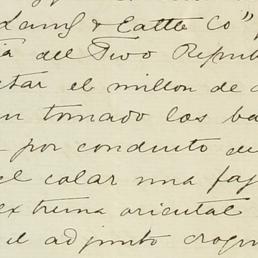 Land & Cattle Co"
del Two Repub
tar el millon de
tomado las ba
por conducto de
el colar una faj
extrema oriental
el adjunto croqu